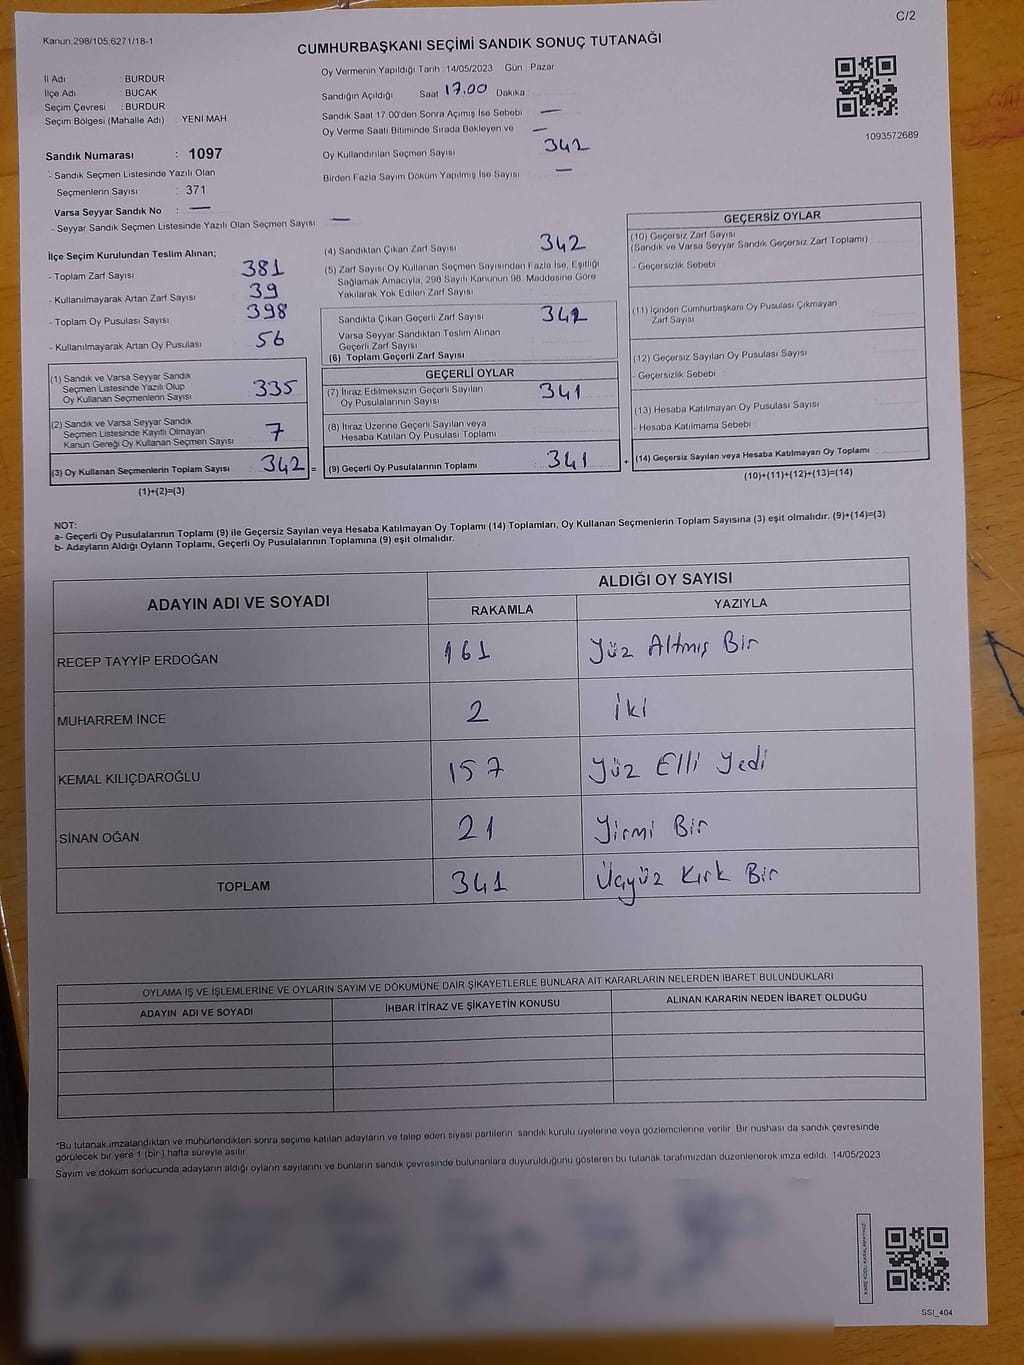 C/2
Kanun 298/105;6271/18-1
CUMHURBAŞKANI SEÇİMİ SANDIK SONUÇ TUTANAĞI
İl Adı : BURDUR
İlçe Adı : BUCAK
Seçim Çevresi : BURDUR
Seçim Bölgesi (Mahalle Adı) : YENİ MAH
Sandık Numarası : 1097
- Sandık Seçmen Listesinde Yazılı Olan
Seçmenlerin Sayısı : 371
Varsa Seyyar Sandık No : —
- Seyyar Sandık Seçmen Listesinde Yazılı Olan Seçmen Sayısı —
Oy Vermenin Yapıldığı Tarih : 14/05/2023 Gün : Pazar
Sandığın Açıldığı Saat 17.00 Dakika :
Sandık Saat 17:00'den Sonra Açımış İse Sebebi —
Oy Verme Saati Bitiminde Sırada Bekleyen ve —
Oy Kullandırılan Seçmen Sayısı 342
Birden Fazla Sayım Döküm Yapılmış İse Sayısı —
1093572689
İlçe Seçim Kurulundan Teslim Alınan;
- Toplam Zarf Sayısı 381
- Kullanılmayarak Artan Zarf Sayısı 39
- Toplam Oy Pusulası Sayısı 398
- Kullanılmayarak Artan Oy Pusulası 56
(1) Sandık ve Varsa Seyyar Sandık
Seçmen Listesinde Yazılı Olup
Oy Kullanan Seçmenlerin Sayısı 335
(2) Sandık ve Varsa Seyyar Sandık
Seçmen Listesinde Kayıtlı Olmayan
Kanun Gereği Oy Kullanan Seçmen Sayısı 7
(3) Oy Kullanan Seçmenlerin Toplam Sayısı 342 =
(1)+(2)=(3)
(4) Sandıktan Çıkan Zarf Sayısı 342
(5) Zarf Sayısı Oy Kullanan Seçmen Sayısından Fazla İse, Eşitliği
Sağlamak Amacıyla, 298 Sayılı Kanunun 98. Maddesine Göre
Yakılarak Yok Edilen Zarf Sayısı
Sandıkta Çıkan Geçerli Zarf Sayısı 342
Varsa Seyyar Sandıktan Teslim Alınan
Geçerli Zarf Sayısı
(6) Toplam Geçerli Zarf Sayısı
GEÇERLİ OYLAR
(7) İtiraz Edilmeksizin Geçerli Sayılan
Oy Pusulalarının Sayısı 341
(8) İtiraz Üzerine Geçerli Sayılan veya
Hesaba Katılan Oy Pusulası Toplamı
(9) Geçerli Oy Pusulalarının Toplamı 341 +
GEÇERSİZ OYLAR
(10) Geçersiz Zarf Sayısı
(Sandık ve Varsa Seyyar Sandık Geçersiz Zarf Toplamı)
- Geçersizlik Sebebi
(11) İçinden Cumhurbaşkanı Oy Pusulası Çıkmayan
Zarf Sayısı
(12) Geçersiz Sayılan Oy Pusulası Sayısı
- Geçersizlik Sebebi
(13) Hesaba Katılmayan Oy Pusulası Sayısı
- Hesaba Katılmama Sebebi
(14) Geçersiz Sayılan veya Hesaba Katılmayan Oy Toplamı
(10)+(11)+(12)+(13)=(14)
NOT:
a- Geçerli Oy Pusulalarının Toplamı (9) ile Geçersiz Sayılan veya Hesaba Katılmayan Oy Toplamı (14) Toplamları, Oy Kullanan Seçmenlerin Toplam Sayısına (3) eşit olmalıdır. (9)+(14)=(3)
b- Adayların Aldığı Oyların Toplamı, Geçerli Oy Pusulalarının Toplamına (9) eşit olmalıdır.
ADAYIN ADI VE SOYADI ALDIĞI OY SAYISI
RAKAMLA YAZIYLA
RECEP TAYYİP ERDOĞAN 161 Yüz Altmış Bir
MUHARREM İNCE 2 İki
KEMAL KILIÇDAROĞLU 157 Yüz Elli Yedi
SİNAN OĞAN 21 Yirmi Bir
TOPLAM 341 Üçyüz Kırk Bir
OYLAMA İŞ VE İŞLEMLERİNE VE OYLARIN SAYIM VE DÖKÜMÜNE DAİR ŞİKAYETLERLE BUNLARA AİT KARARLARIN NELERDEN İBARET BULUNDUKLARI
ADAYIN ADI VE SOYADI İHBAR İTİRAZ VE ŞİKAYETİN KONUSU ALINAN KARARIN NEDEN İBARET OLDUĞU
*Bu tutanak imzalandıktan ve mühürlendikten sonra seçime katılan adayların ve talep eden siyasi partilerin sandık kurulu üyelerine veya gözlemcilerine verilir. Bir nüshası da sandık çevresinde
görülecek bir yere 1 (bir) hafta süreyle asılır.
Sayım ve döküm sonucunda adayların aldığı oyların sayılarını ve bunların sandık çevresinde bulunanlara duyurulduğunu gösteren bu tutanak tarafımızdan düzenlenerek imza edildi. 14/05/2023
KARE KODU KARALAMAYINIZ!
SSI_404